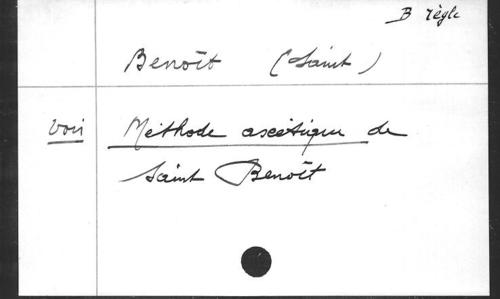 B règle
Benoît (Saint)
voir Méthode ascétique de
Saint Benoît